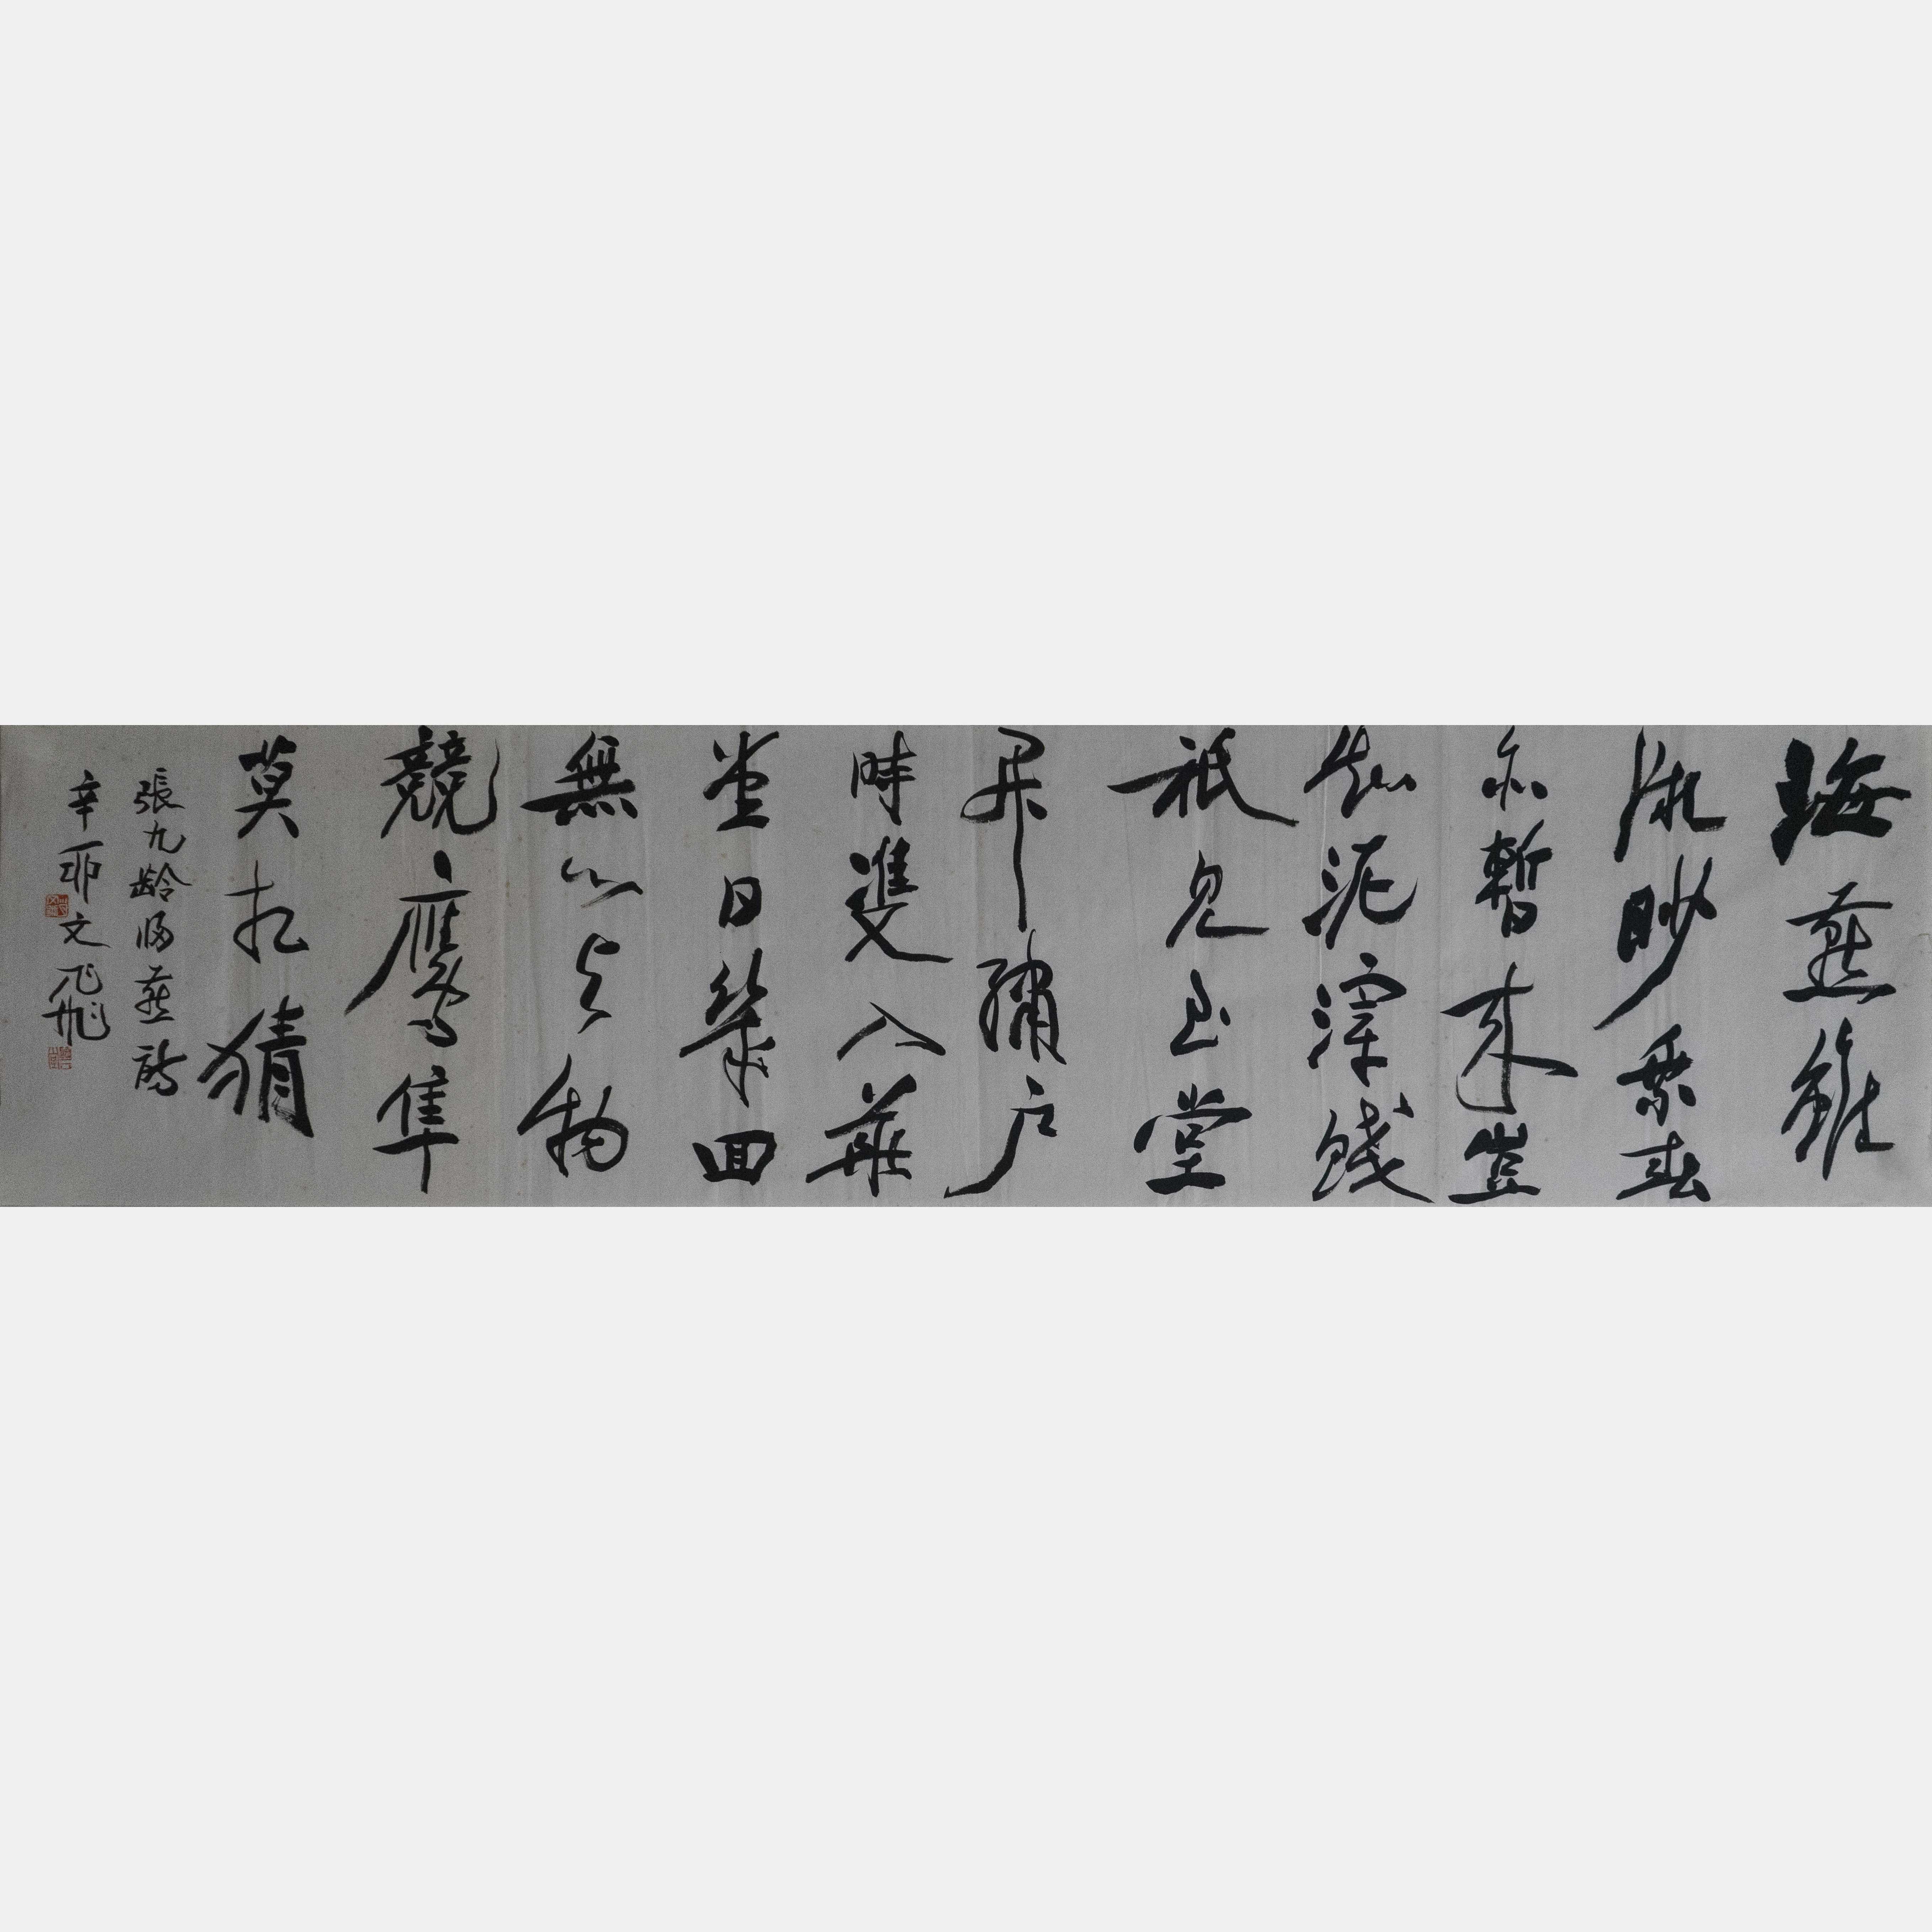 海燕雖
微眇乘春
亦暫來豈
知泥滓賤
祇見玉堂
開繡戶
時雙入華
堂日幾回
無心與物
競鷹隼
莫相猜
張九齡歸燕詩
辛卯文飛